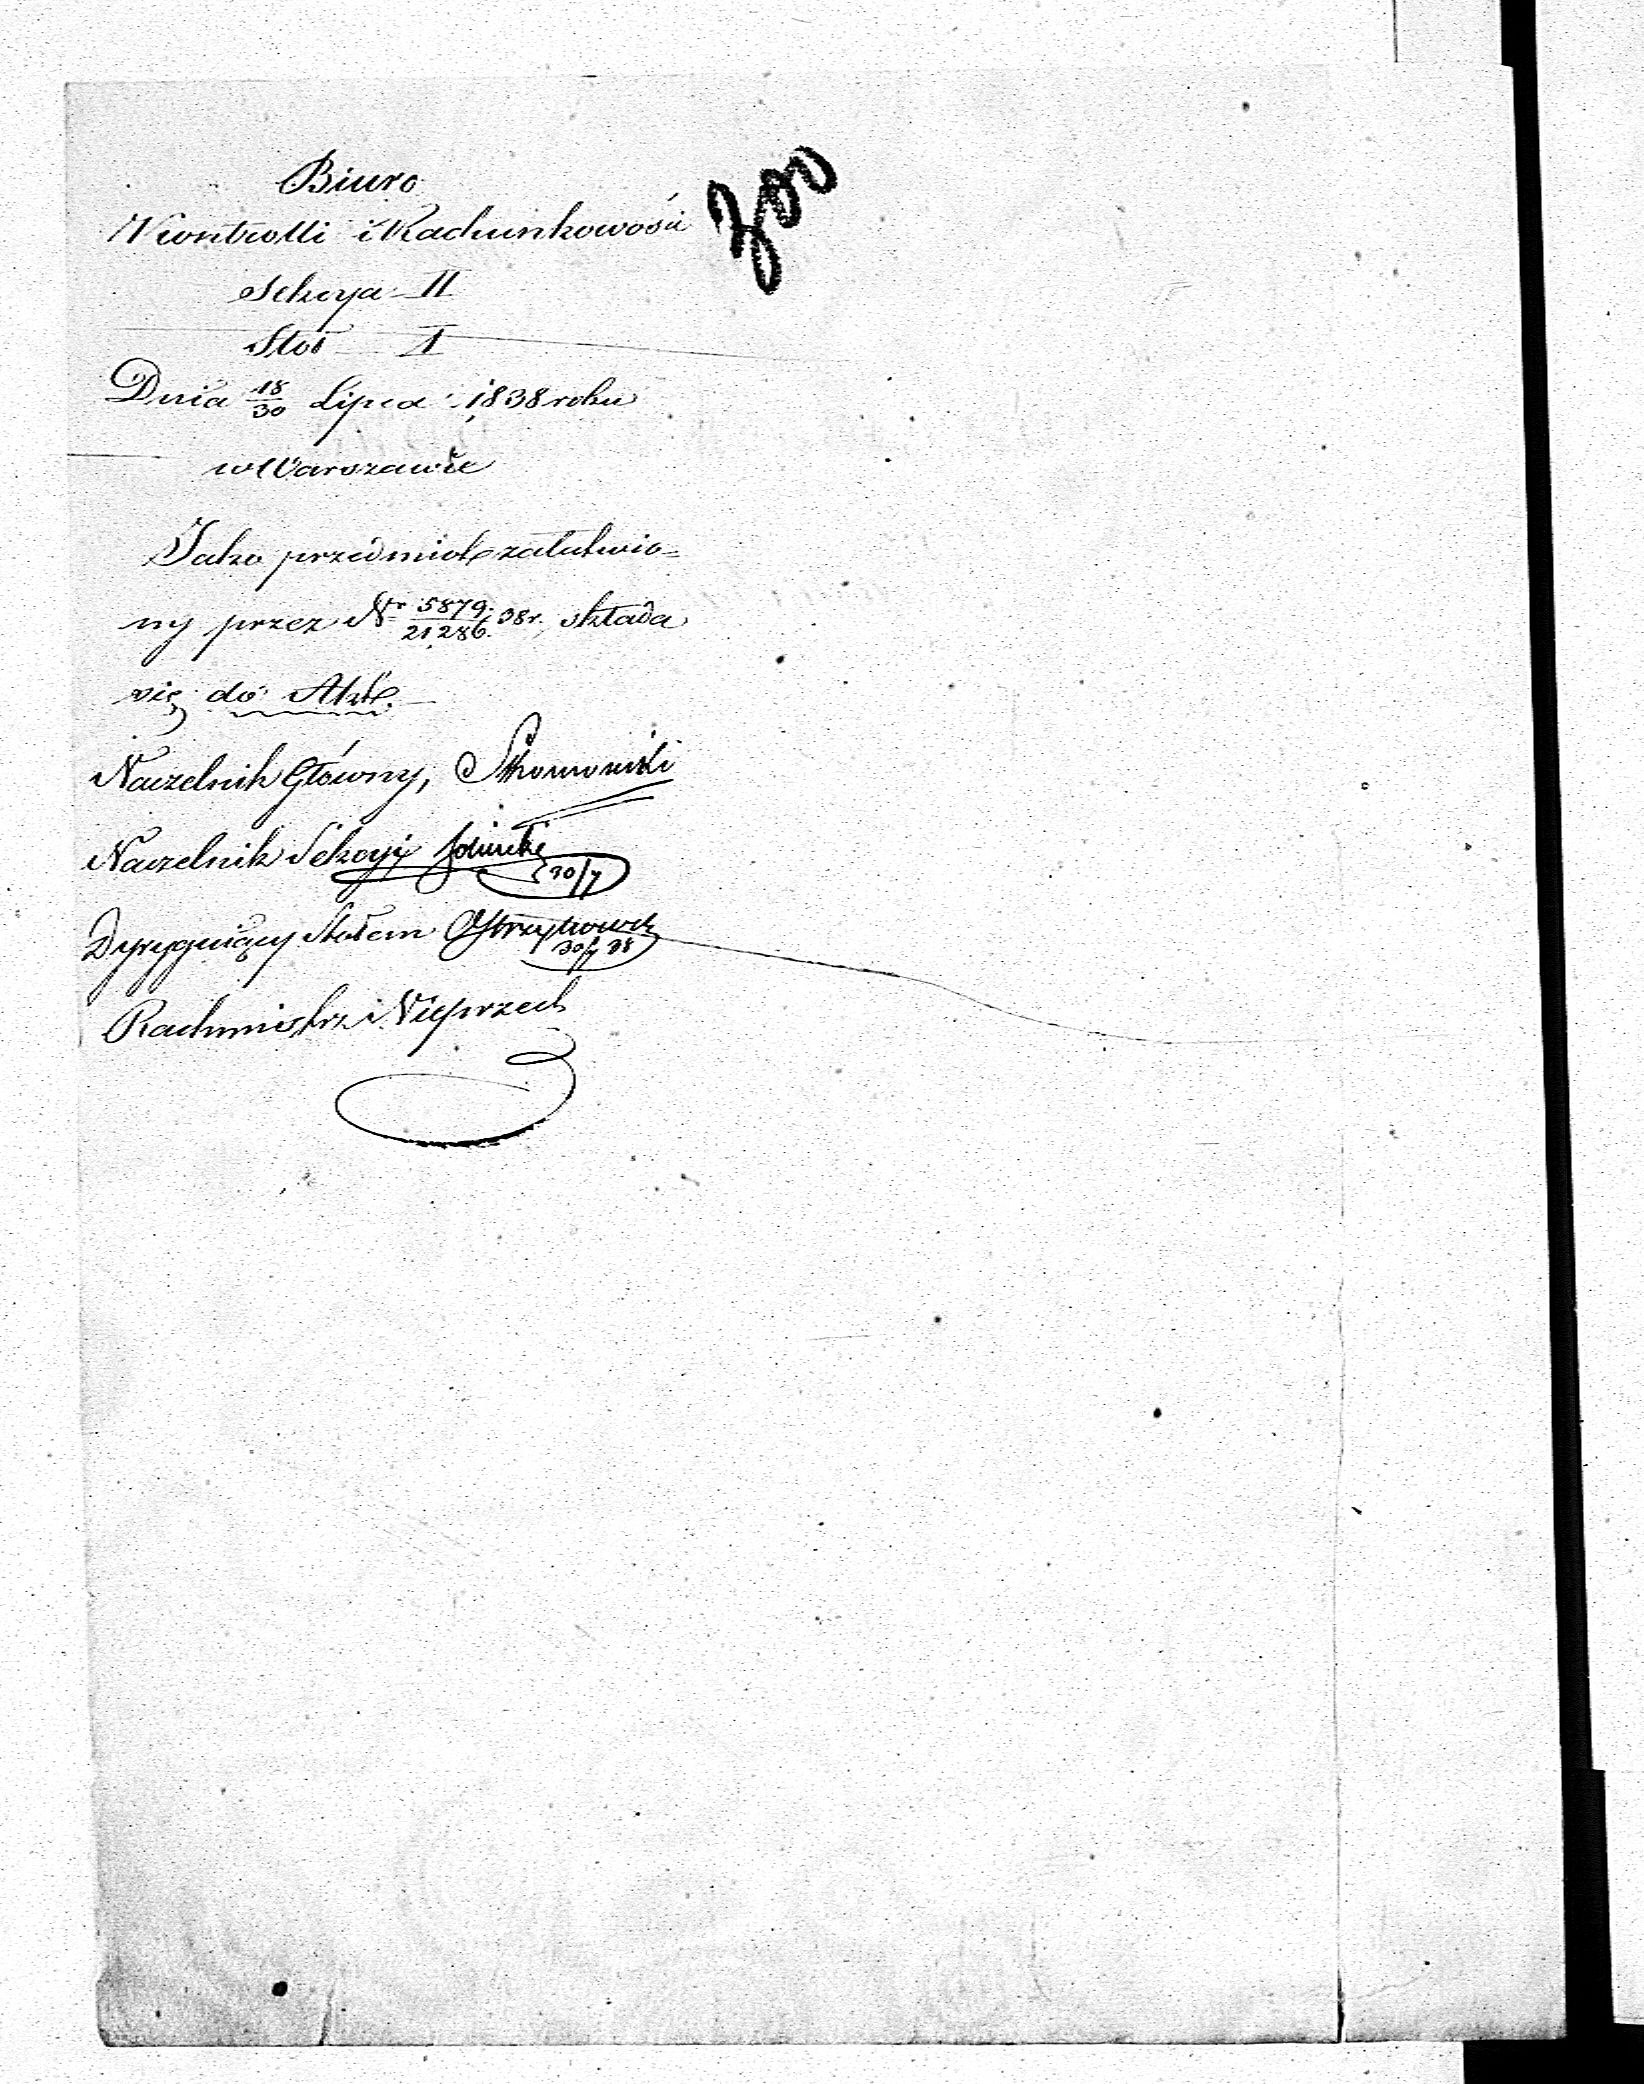 Biuro
Kontrolli i Rachunkowości
Sekcya II
Stół I
Dnia 18/30 Lipca 1838 roku
w Warszawie
Jako przedmiot załatwio=
ny przez Nr 5879/21286. 38r. składa
się do Akt.
Naczelnik Główny,
Naczelnik Sekcyi
30/7
Dyrygujący Stołem
30/7 38
Rachmistrz Wieprzech